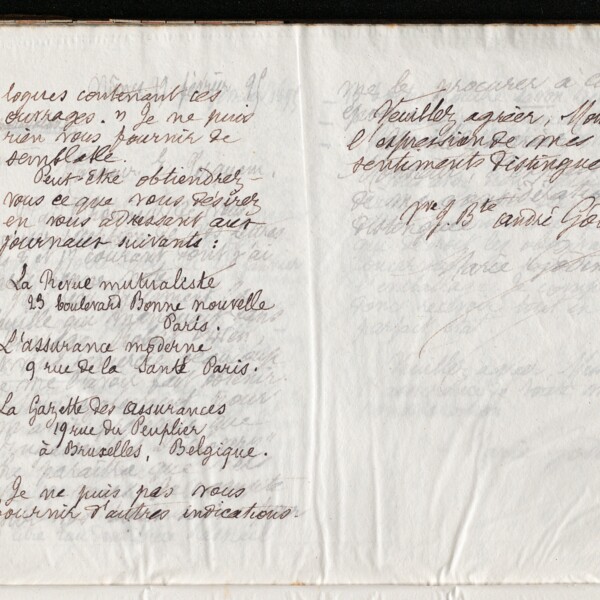 logues contenant ces
ouvrages. " Je ne puis
rien vous fournir de
semblable.
Peut-être obtiendrez
vous ce que vous désirez
en vous adressant aux
journaux suivants :
La Revue mutualiste
23 boulevard Bonne nouvelle
Paris.
L'assurance moderne
9 rue de la Santé Paris.
La Gazette des assurances
19 rue du Peuplier
à Bruxelles, Belgique.
Je ne puis pas vous
fournir d'autres indications.
Veuillez agréer, Mon
l'expression de mes
sentiments distingue
andré